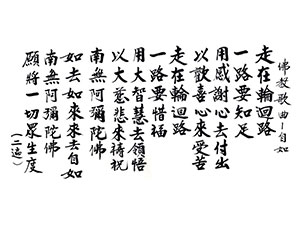 佛教歌曲－自如
走在輪迴路
一路要知足
用感謝心去付出
以歡喜心來受苦
走在輪迴路
一路要惜福
用大智慧去領悟
以大慈悲來禱祝
南無阿彌陀佛
如去如來來去自如
南無阿彌陀佛
願將一切眾生度
(二遍)